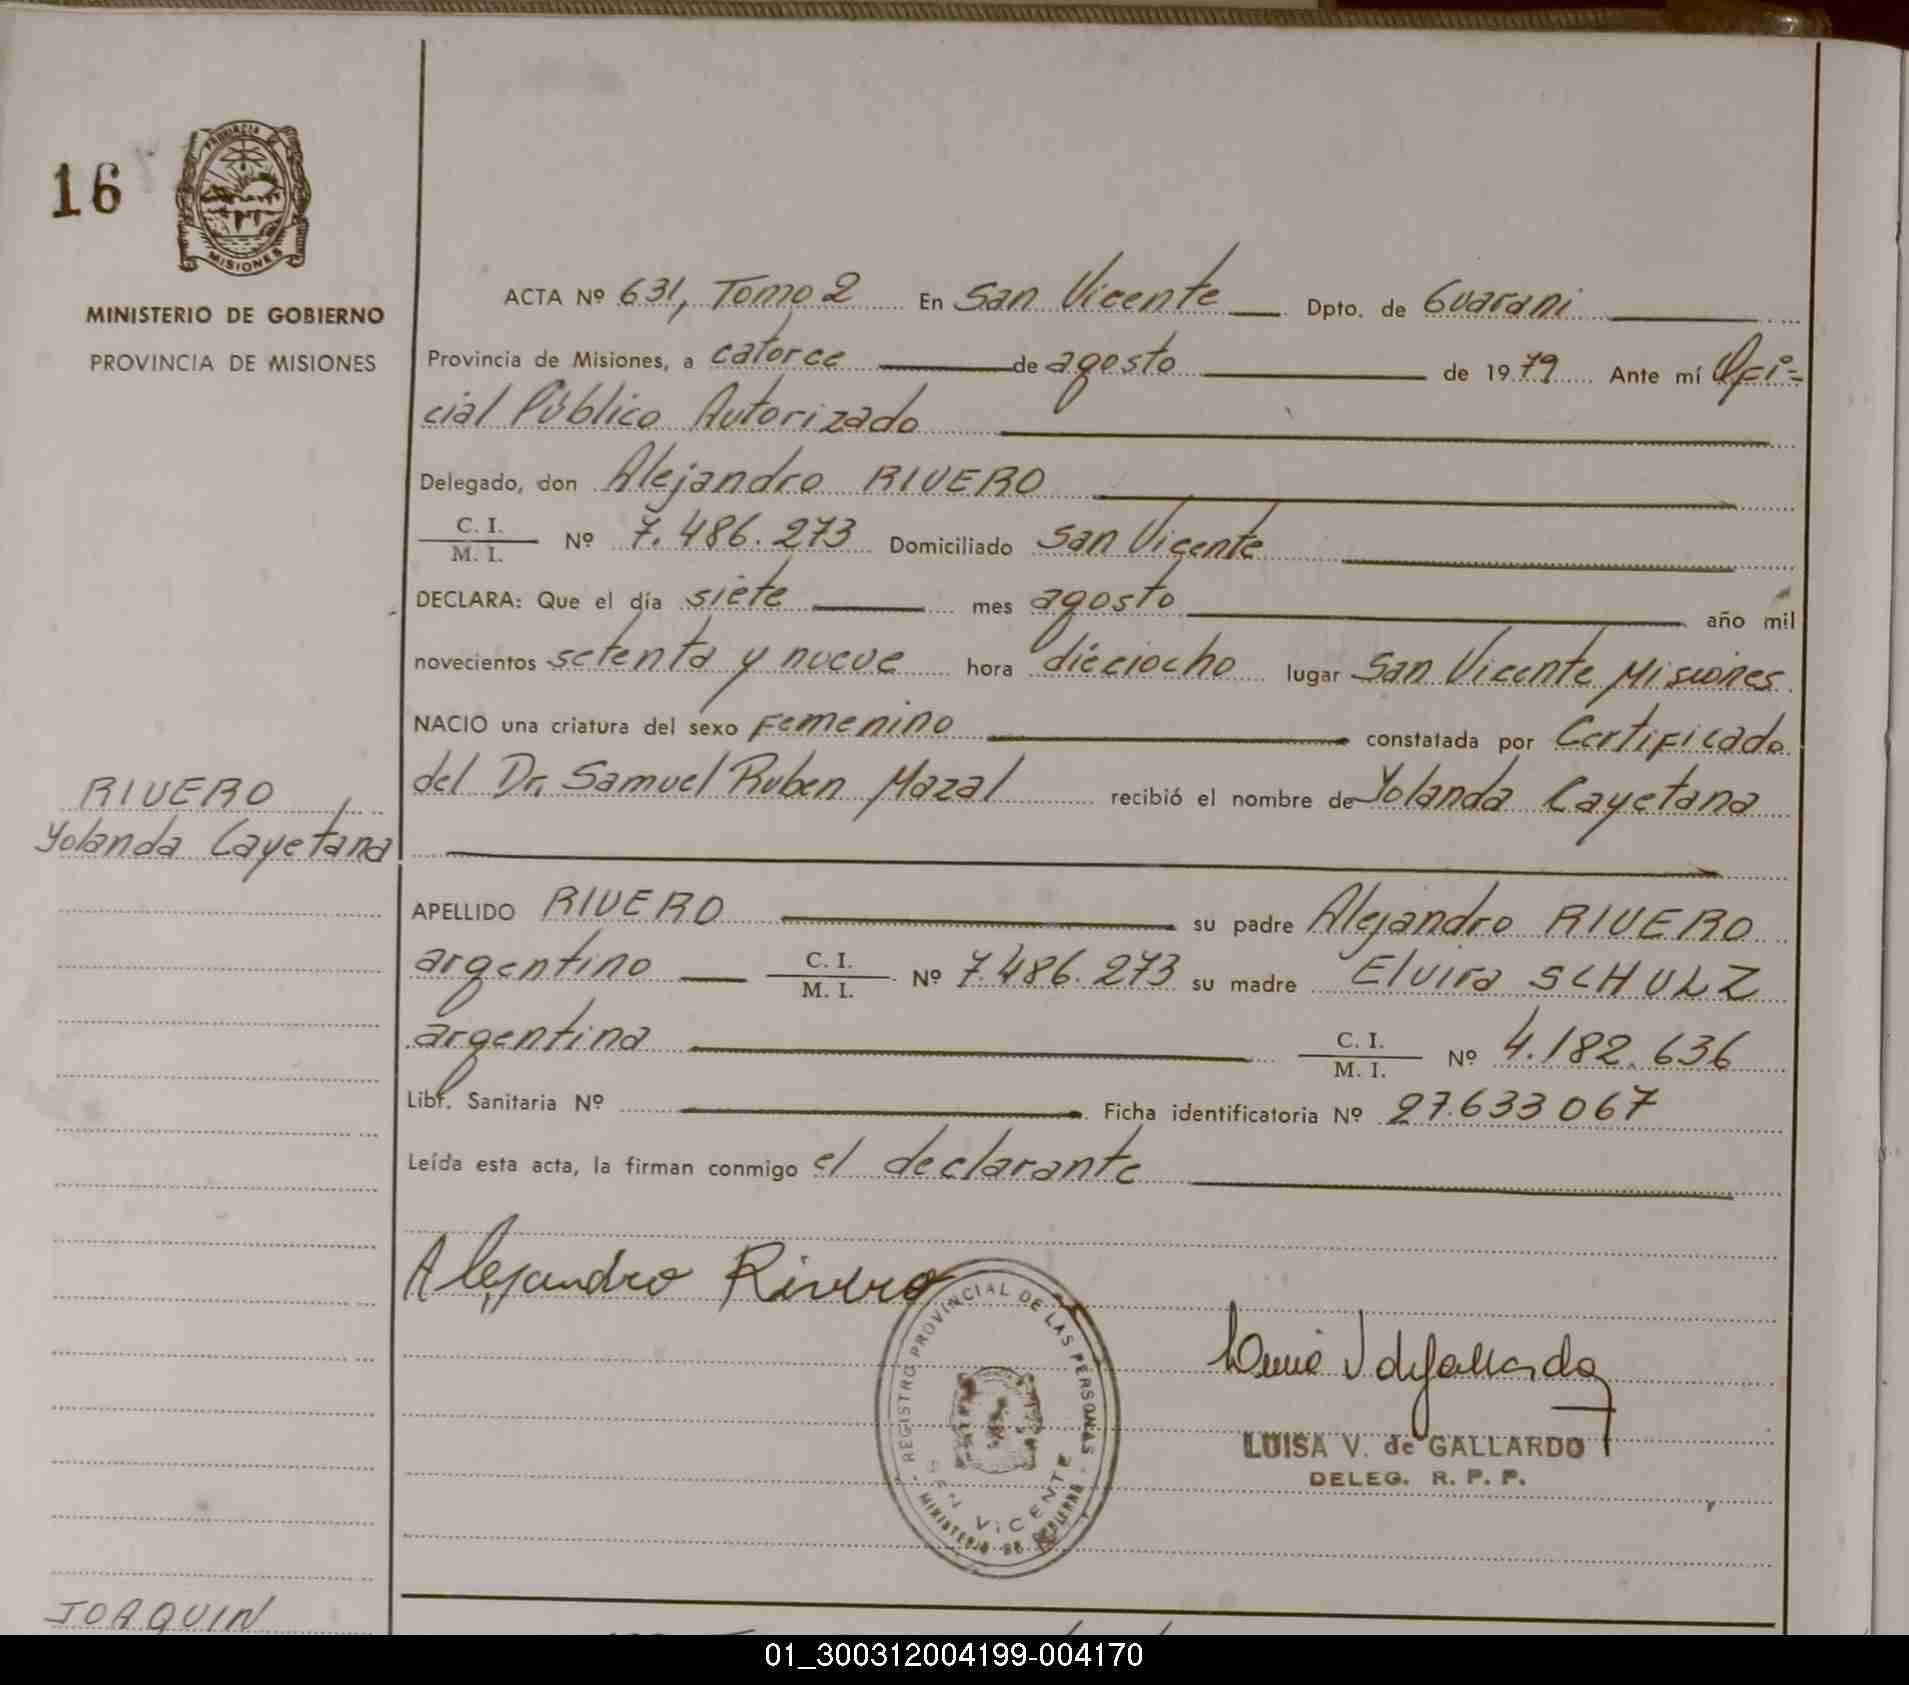 16
PROVINCIA DE
MISIONES
MINISTERIO DE GOBIERNO
PROVINCIA DE MISIONES
ACTA Nº 631, Tomo 2 En San Vicente Dpto. de Guarani
Provincia de Misiones, a catorce de agosto de 1979 Ante mí Ofi=
cial Público Autorizado
Delegado, don Alejandro RIVERO
C. I.
M. I. Nº 7.486.273 Domiciliado San Vicente
DECLARA: Que el día siete mes agosto año mil
novecientos setenta y nueve hora dieciocho lugar San Vicente Misiones
NACIO una criatura del sexo Femenino constatada por Certificado
del Dr. Samuel Ruben Mazal recibió el nombre de Yolanda Cayetana
RIVERO
Yolanda Cayetana
APELLIDO RIVERO su padre Alejandro RIVERO
argentino C. I.
M. I. Nº 7.486.273 su madre Elvira SCHULZ
argentina C. I.
M. I. Nº 4.182.636
Libr. Sanitaria Nº Ficha identificatoria Nº 27.633067
Leída esta acta, la firman conmigo el declarante
Alejandro Rivero
REGISTRO PROVINCIAL DE LAS PERSONAS
VICENTE
MINISTERIO DE
LUISA V. de GALLARDO
DELEG. R. P. P.
JOAQUIN
01_300312004199-004170